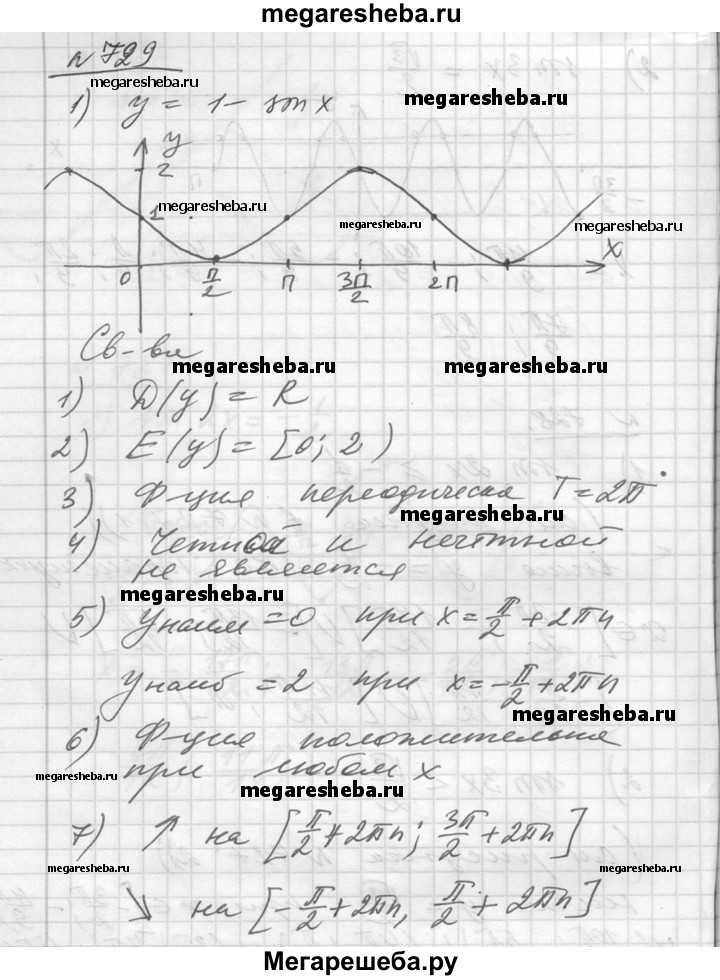 megaresheba.ru
n 729
megaresheba.ru
1) y = 1 - sin x
megaresheba.ru
y
2
megaresheba.ru
1
megaresheba.ru
megaresheba.ru
x
0 π/2 π 3π/2 2π
Св-ва
megaresheba.ru
megaresheba.ru
1) D(y) = R
2) E(y) = [0; 2)
3) Ф-ция периодическая T = 2π
megaresheba.ru
4) Четной и нечётной
не является
megaresheba.ru
5) Унаим = 0 при x = π/2 + 2πn
Унаиб = 2 при x = -π/2 + 2πn
megaresheba.ru
6) Ф-ция положительна
при любом x
megaresheba.ru
megaresheba.ru
7) ↑ на [π/2 + 2πn; 3π/2 + 2πn]
megaresheba.ru
megaresheba.ru
↘ на [-π/2 + 2πn, π/2 + 2πn]
Мегарешеба.ру